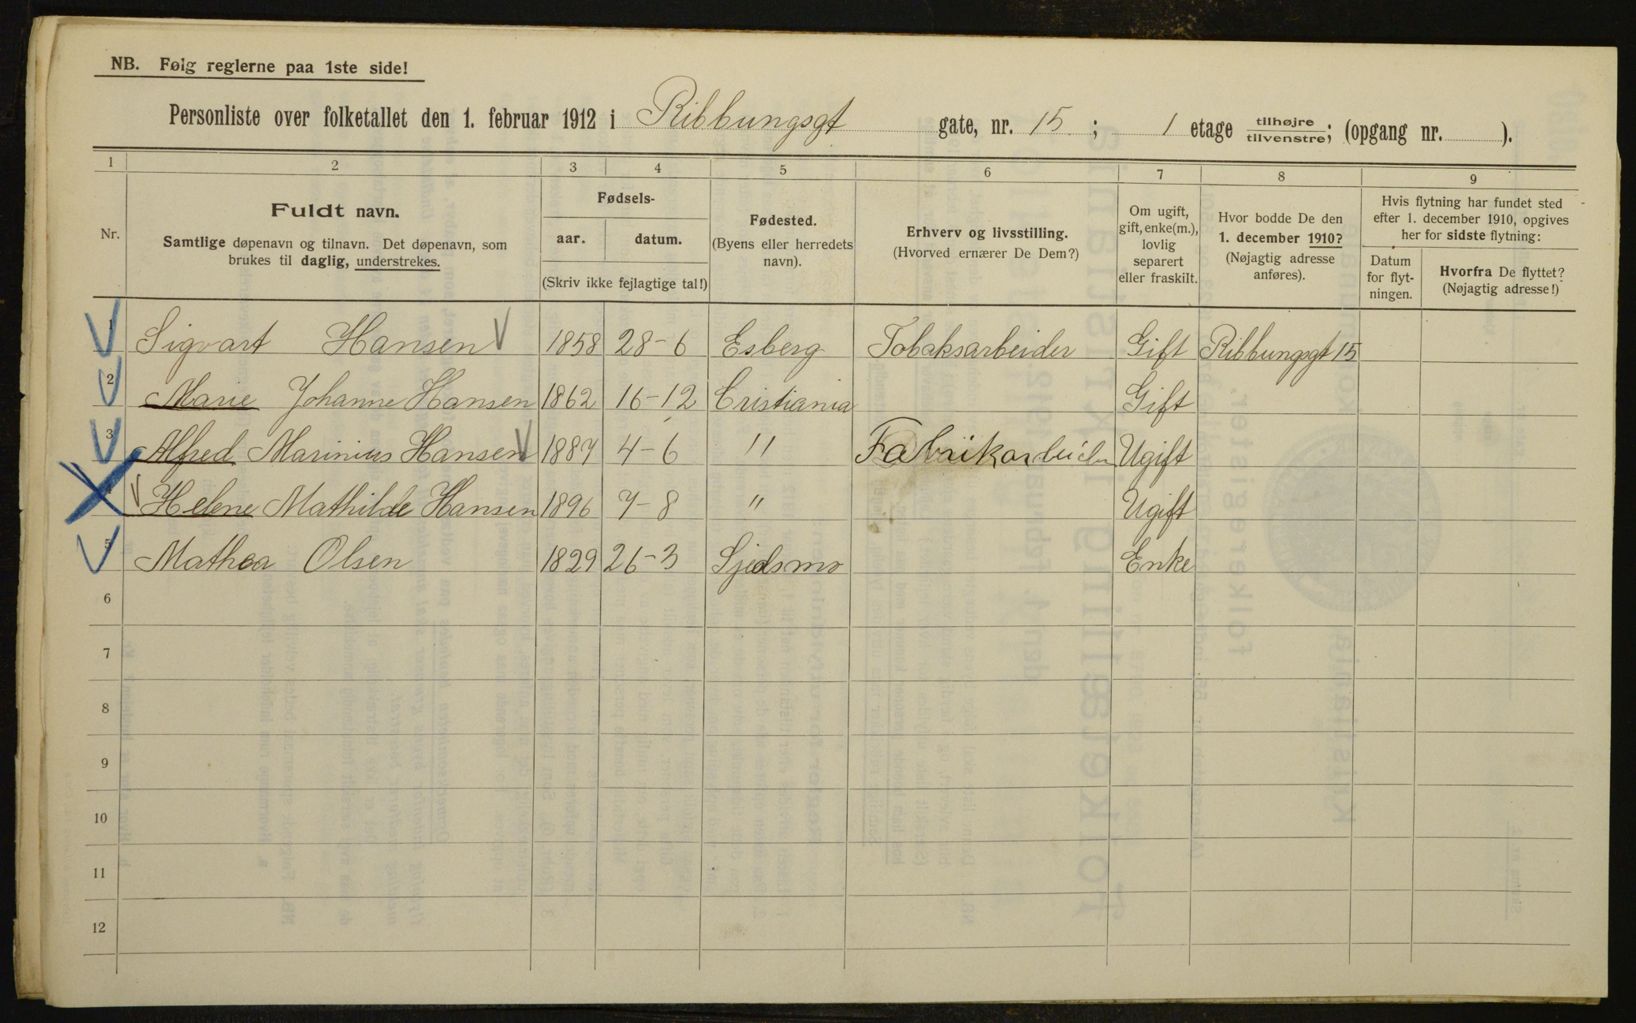 NB. Følg reglerne paa 1ste side!
Personliste over folketallet den 1. februar 1912 i Ribbungsgt gate, nr. 15 ; 1 etage tilhøjre tilvenstre; (opgang nr. ).
1 2 3 4 5 6 7 8 9
Nr.
Fuldt navn.
Samtlige døpenavn og tilnavn. Det døpenavn, som
brukes til daglig, understrekes.
Fødsels-
aar. datum.
(Skriv ikke fejlagtige tal!)
Fødested.
(Byens eller herredets
navn).
Erhverv og livsstilling.
(Hvorved ernærer De Dem?)
Om ugift,
gift, enke(m.),
lovlig
separert
eller fraskilt.
Hvor bodde De den
1. december 1910?
(Nøjagtig adresse
anføres).
Hvis flytning har fundet sted
efter 1. december 1910, opgives
her for sidste flytning:
Datum
for flyt-
ningen.
Hvorfra De flyttet?
(Nøjagtig adresse!)
1 Sigvart Hansen 1858 28-6 Esberg Tobaksarbeider Gift Ribbungsgt 15
2 Marie Johanne Hansen 1862 16-12 Cristiania Gift
3 Alfred Marinius Hansen 1887 4-6 " Fabrikarbeider Ugift
4 Helene Mathilde Hansen 1896 7-8 " Ugift
5 Mathea Olsen 1829 26-3 Sjedsmo Enke
6
7
8
9
10
11
12